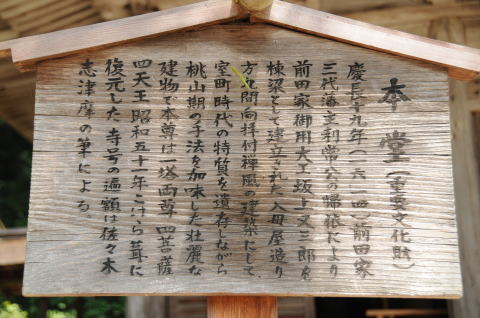 本堂(重要文化財)
慶長十九年(一六一四)前田家
三代藩主利常公の帰依により
前田家御用大工坂上又三郎を
棟梁として建立された入母屋造り
方九間向拝付禅風の建築にして、
室町時代の特質を遺存しながら
桃山期の手法を加味した壮麗な
建物で本尊は一塔両尊四菩薩
四天王昭和五十一年こけら葺に
復元した 寺号の遍額は佐々木
志津摩の筆による。